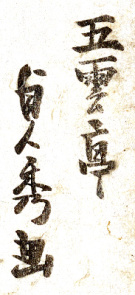 五雲亭
貞秀画